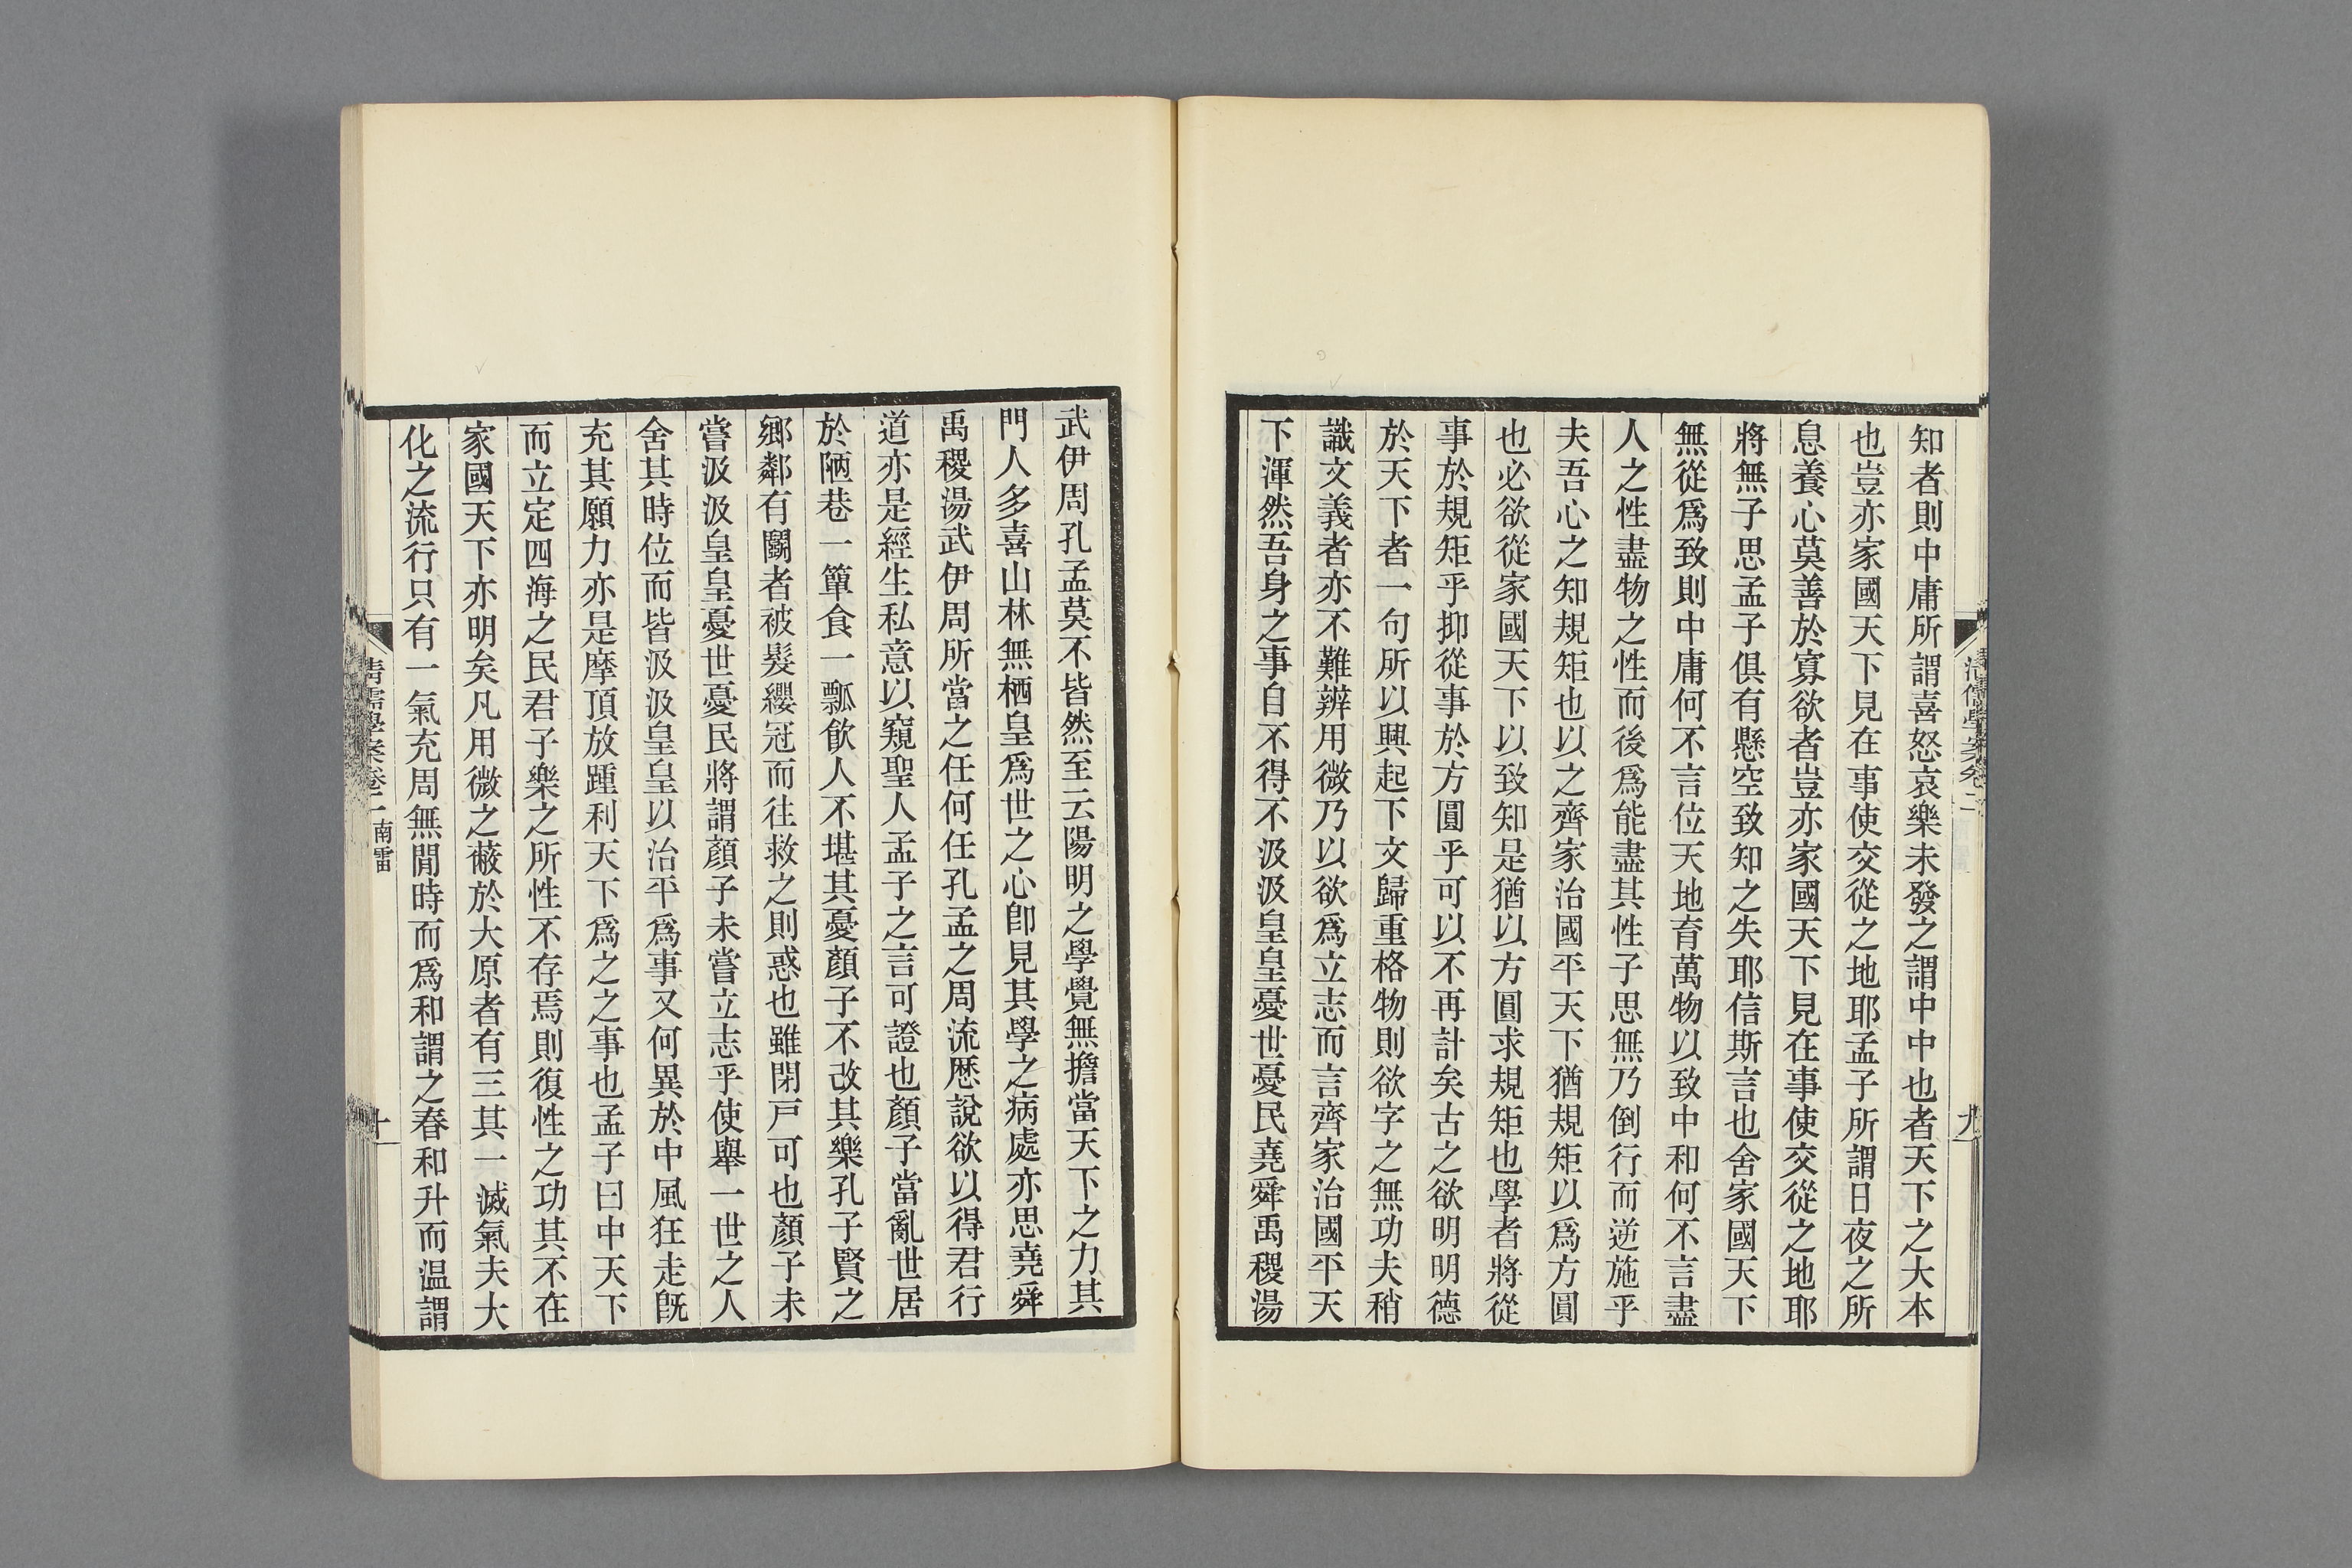 知者則中庸所謂喜怒哀樂未發之謂中中也者天下之大本
也豈亦家國天下見在事使交從之地耶孟子所謂日夜之所
息養心莫善於寡欲者豈亦家國天下見在事使交從之地耶
將無子思孟子俱有懸空致知之失耶信斯言也舍家國天下
無從爲致則中庸何不言位天地育萬物以致中和何不言盡
人之性盡物之性而後爲能盡其性子思無乃倒行而逆施乎
夫吾心之知規矩也以之齊家治國平天下猶規矩以爲方圓
也必欲從家國天下以致知是猶以方圓求規矩也學者將從
事於規矩乎抑從事於方圓乎可以不再計矣古之欲明明德
於天下者一句所以興起下文歸重格物則欲字之無功夫稍
識文義者亦不難辨用微乃以欲爲立志而言齊家治國平天
下渾然吾身之事自不得不汲汲皇皇憂世憂民堯舜禹稷湯
清儒學案卷二
九
武伊周孔孟莫不皆然至云陽明之學覺無擔當天下之力其
門人多喜山林無栖皇爲世之心卽見其學之病處亦思堯舜
禹稷湯武伊周所當之任何任孔孟之周流厯說欲以得君行
道亦是經生私意以窺聖人孟子之言可證也顏子當亂世居
於陋巷一簞食一瓢飲人不堪其憂顏子不改其樂孔子賢之
鄉鄰有鬭者被髮纓冠而往救之則惑也雖閉戸可也顏子未
嘗汲汲皇皇憂世憂民將謂顏子未嘗立志乎使舉一世之人
舍其時位而皆汲汲皇皇以治平爲事又何異於中風狂走旣
充其願力亦是摩頂放踵利天下爲之之事也孟子曰中天下
而立定四海之民君子樂之所性不存焉則復性之功其不在
家國天下亦明矣凡用微之蔽於大原者有三其一滅氣夫大
化之流行只有一氣充周無閒時而爲和謂之春和升而温謂
清儒學案卷二 南雷
十